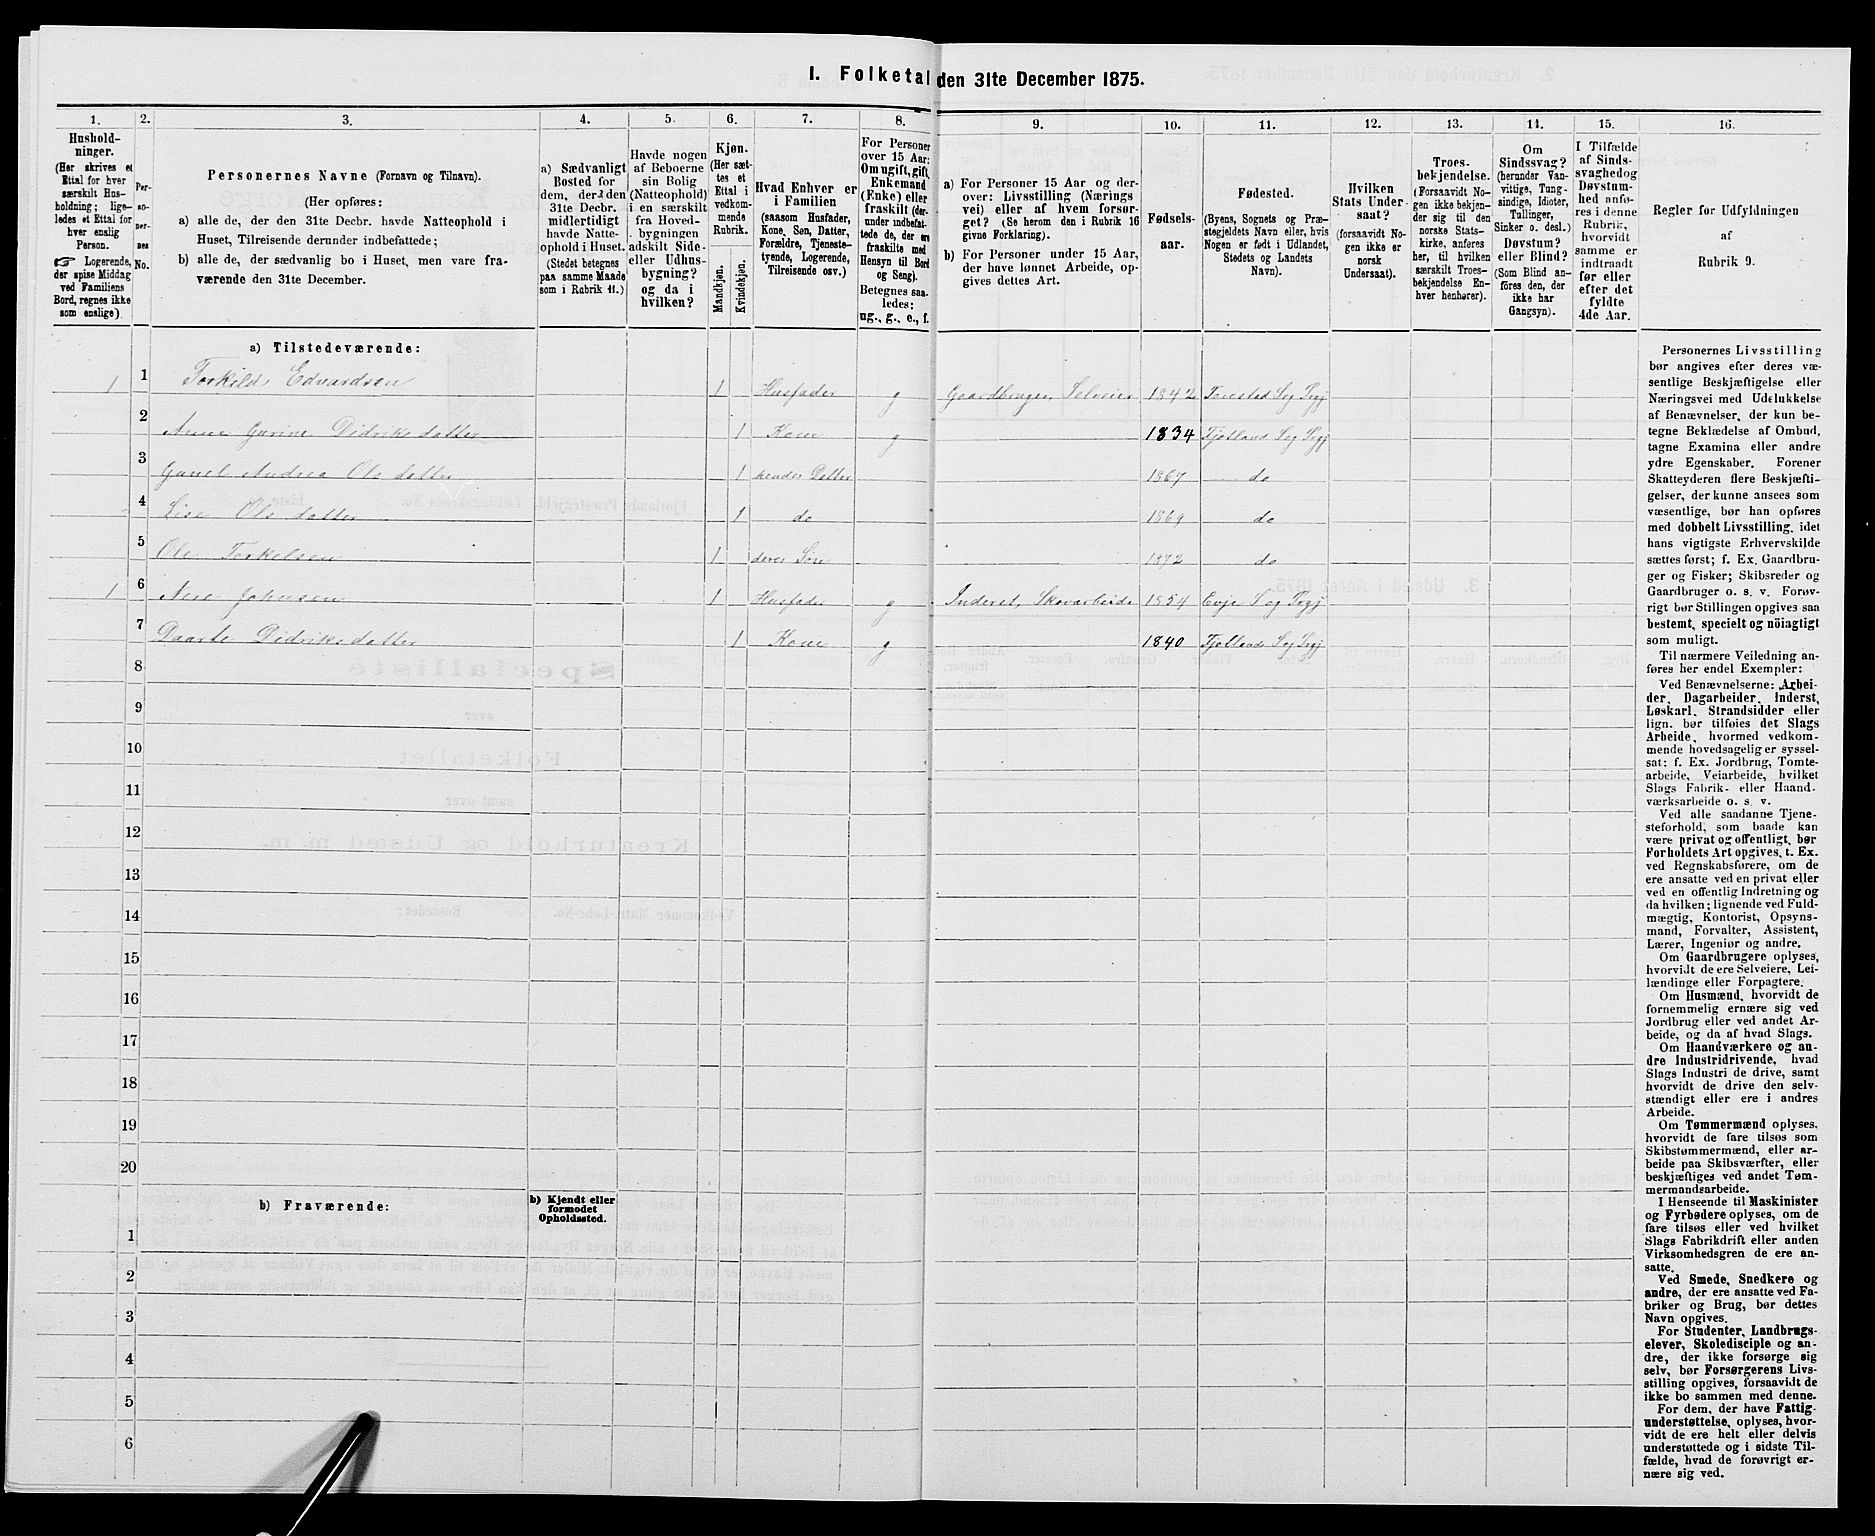 I. Folketal den 31te December 1875.
1.
Hushold-
ninger.
(Her skrives et
Ettal for hver
særskilt Hus-
holdning; lige-
ledes et Ettal for
hver enslig
Person.
☞ Logerende,
der spise Middag
ved Familiens
Bord, regnes ikke
som enslige).
2.
Per-
so-
ner-
nes
No.
3.
Personernes Navne (Fornavn og Tilnavn).
(Her opføres:
a) alle de, der den 31te Decbr. havde Natteophold i
Huset, Tilreisende derunder indbefattede;
b) alle de, der sædvanlig bo i Huset, men vare fra-
værende den 31te December.
4.
a) Sædvanligt
Bosted for
dem, der den
31te Decbr.
midlertidigt
havde Natte-
ophold i Huset.
(Stedet betegnes
paa samme Maade
som i Rubrik 11.)
5.
Havde nogen
af Beboerne
sin Bolig
(Natteophold)
i en særskilt
fra Hoved-
bygningen
adskilt Side-
eller Udhus-
bygning?
og da i
hvilken?
6.
Kjøn.
(Her sæt-
tes et
Ettal i
vedkom-
mende
Rubrik.
Mandkjøn.
Kvindekjøn.
7.
Hvad Enhver er
i Familien
(saasom Husfader,
Kone, Søn, Datter,
Forældre, Tjeneste-
tyende, Logerende,
Tilreisende osv.)
8.
For Personer
over 15 Aar:
Om ugift, gift,
Enkemand
(Enke) eller
fraskilt (der-
under indbefat-
tede de, der ere
fraskilte med
Hensyn til Bord
og Seng).
Betegnes saa-
ledes:
ug., g., e., f.
9.
a) For Personer 15 Aar og der-
over: Livsstilling (Nærings
vei) eller af hvem forsør-
get? (Se herom den i Rubrik 16
givne Forklaring).
b) For Personer under 15 Aar,
der have lønnet Arbeide, op-
gives dettes Art.
10.
Fødsels-
aar.
11.
Fødested.
(Byens, Sognets og Præ-
stegjeldets Navn eller, hvis
Nogen er født i Udlandet,
Stedets og Landets
Navn).
12.
Hvilken
Stats Under-
saat?
(forsaavidt No-
gen ikke er
norsk
Undersaat).
13.
Troes-
bekjendelse.
(Forsaavidt No-
gen ikke bekjen-
der sig til den
norske Stats-
kirke, anføres
her, til hvilken
særskilt Troes-
bekjendelse En-
hver henhører).
14.
Om
Sindssvag?
(herunder Van-
vittige, Tung-
sindige, Idioter,
Tullinger,
Sinker o. desl.)
Døvstum?
eller Blind?
(Som Blind an-
føres den, der
ikke har
Gangsyn).
15.
I Tilfælde
af Sinds-
svaghed og
Døvstum-
hed anfø-
res i denne
Rubrik,
hvorvidt
samme er
indtraadt
før eller
efter det
fyldte
4de Aar.
16.
Regler for Udfyldningen
af
Rubrik 9.
a) Tilstedeværende:
1 1 Torkild Edvardsen 1 Husfader g Gaardbruger, Selveier 1842
2 Anne Gurine Didriksdatter 1 Kone g 1834 Fjotland S og Prgj
3 Gunel Andrea Olsdatter 1 hendes Datter 1867 do
4 Lise Olsdatter 1 do 1869 do
5 Ole Torkelsen 1 deres Søn 1872 do
1 6 Johnsen 1 Husfader g Inderst, Skovarbeide 1854 Evje S og Prgj
7 Daarte Didriksdatter 1 Kone g 1840 Fjotlands S og Prgj
8
9
10
11
12
13
14
15
16
17
18
19
20
b) Fraværende:
b) Kjendt eller
formodet
Opholdssted.
1
2
3
4
5
6
Personernes Livsstilling
bør angives efter deres væ-
sentlige Beskjæftigelse eller
Næringsvei med Udelukkelse
af Benævnelser, der kun be-
tegne Beklædelse af Ombud,
tagne Examina eller andre
ydre Egenskaber. Forener
Skatteyderen flere Beskjæfti-
gelser, der kunne ansees som
væsentlige, bør han opføres
med dobbelt Livsstilling, idet
hans vigtigste Erhvervskilde
sættes først; f. Ex. Gaardbru-
ger og Fisker; Skibsreder og
Gaardbruger o. s. v. Forøv-
rigt bør Stillingen opgives saa
bestemt, specielt og nöiagtigt
som muligt.
Til nærmere Veiledning an-
føres her endel Exempler:
Ved Benævnelserne: Arbei-
der, Dagarbeider, Inderst,
Løskarl, Strandsidder eller
lign. bør tilføies det Slags
Arbeide, hvormed vedkom-
mende hovedsagelig er syssel-
sat: f. Ex. Jordbrug, Tomte-
arbeide, Veiarbeide, hvilket
Slags Fabrik- eller Haand-
værksarbeide o. s. v.
Ved alle saadanne Tjene-
steforhold, som baade kan
være privat og offentligt, bør
Forholdets Art opgives, t. Ex.
ved Regnskabsførere, om de
ere ansatte ved en privat eller
ved en offentlig Indretning og
da hvilken; lignende ved Fuld-
mægtig, Kontorist, Opsyns-
mand, Forvalter, Assistent,
Lærer, Ingeniør og andre.
Om Gaardbrugere oplyses,
hvorvidt de ere Selveiere, Lei-
lændinge eller Forpagtere.
Om Husmænd, hvorvidt de
fornemmelig ernære sig ved
Jordbrug eller ved andet Ar-
beide, og da af hvad Slags.
Om Haandværkere og an-
dre Industridrivende, hvad
Slags Industri de drive, samt
hvorvidt de drive den selv-
stændigt eller ere i andres
Arbeide.
Om Tømmermænd oplyses,
hvorvidt de fare tilsøs som
Skibstømmermænd, eller ar-
beide paa Skibsværfter, eller
beskjæftiges ved andet Tøm-
mermandsarbeide.
I Henseende til Maskinister
og Fyrbødere oplyses, om de
fare tilsøs eller ved hvilket
Slags Fabrikdrift eller anden
Virksomhedsgren de ere an-
satte.
Ved Smede, Snedkere og
andre, der ere ansatte ved Fa-
briker og Brug, bør dettes
Navn opgives.
For Studenter, Landbrugs-
elever, Skoledisciple og an-
dre, der ikke forsørge sig
selv, bør Forsørgerens Livs-
stilling opgives, forsaavidt de
ikke bo sammen med denne.
For dem, der have Fattig-
understøttelse, oplyses, hvor-
vidt de ere helt eller delvis
understøttede og i sidste Til-
fælde, hvad de forøvrigt er-
nære sig ved.